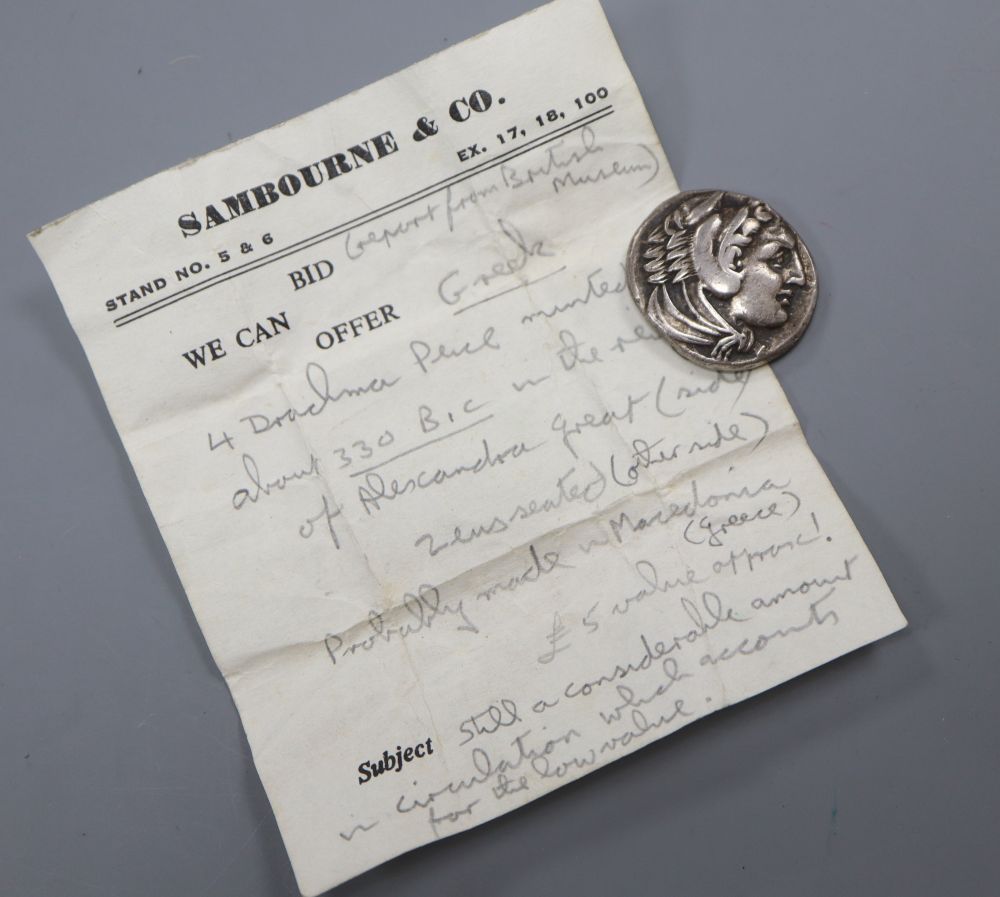 SAMBOURNE & CO.
STAND NO. 5 & 6 EX. 17, 18, 100
BID (report from British
Museum)
WE CAN
OFFER Greek
4 Drachma Piece minted
about 330 B.C in the
of Alexandra great (side)
Zeus seated (other side)
Probably made in Macedonia
(Greece)
£5 value approx!
Subject Still a considerable amount
in circulation which accounts
for the low value.